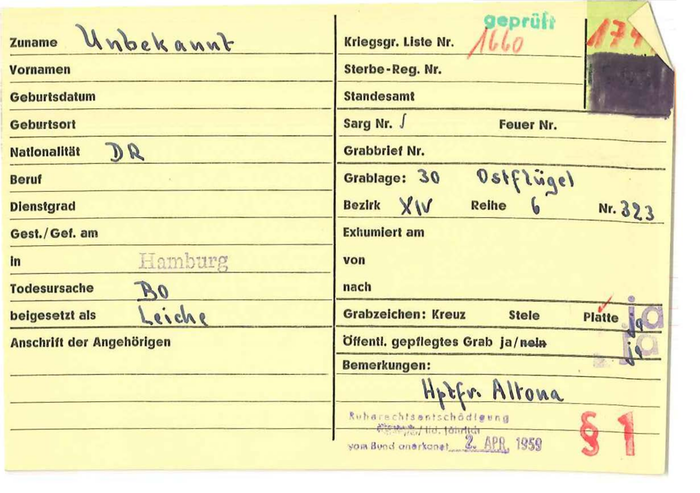 Zuname Unbekannt
Vornamen
Geburtsdatum
Geburtsort
Nationalität DR
Beruf
Dienstgrad
Gest./Gef. am
in Hamburg
Todesursache BO
beigesetzt als Leiche
Anschrift der Angehörigen
geprüft
Kriegsgr. Liste Nr. 1660
Sterbe-Reg. Nr.
Standesamt
Sarg Nr. Feuer Nr.
Grabbrief Nr.
Grablage: 30 Ostflügel
Bezirk XIV Reihe 6 Nr. 323
Exhumiert am
von
nach
Grabzeichen: Kreuz Stele Platte ja
Öffentl. gepflegtes Grab ja/nein ja
Bemerkungen:
Hptfr. Altona
Ruherechtsentschädigung
lfd. jährlich
vom Bund anerkannt 2. APR. 1959
§ 1